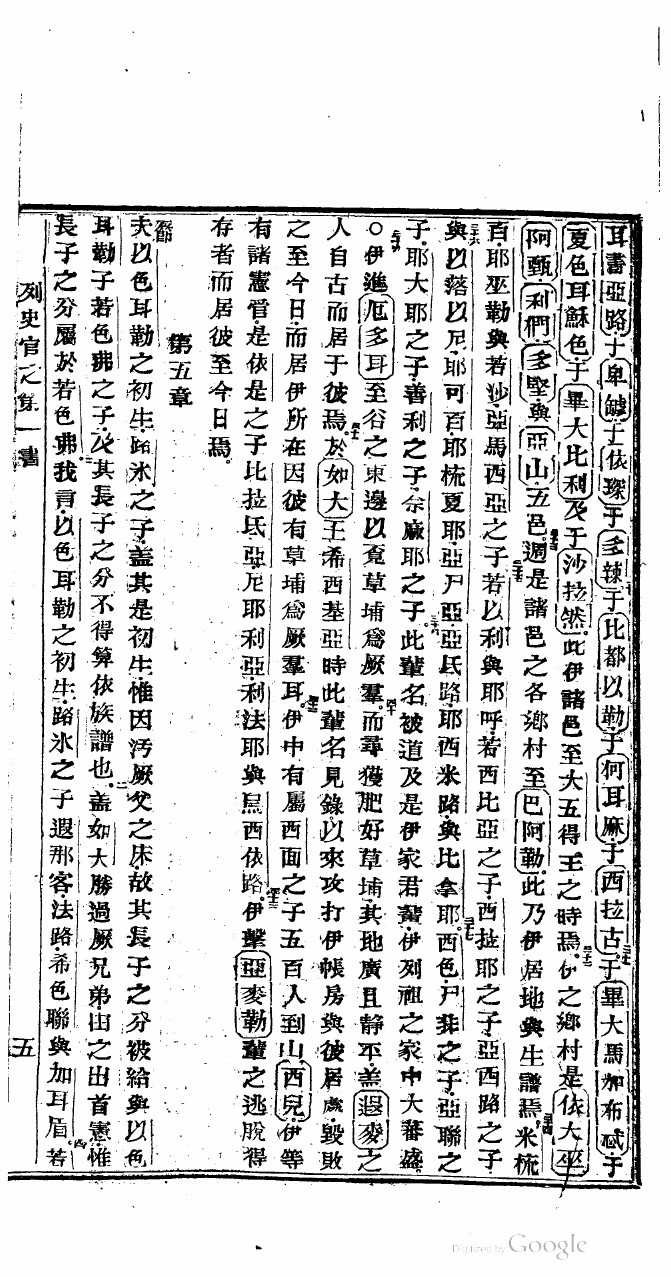 耳書亞路于卑鱸于依琛于多辣于比都以勒于何耳麻于西拉古于畢大馬加布忒于
夏色耳蘇色于畢大比利及于沙拉然此伊諸邑至大五得王之時焉伊之鄉村是依大坐
阿甄利們多堅與亞山五邑週是諸邑之各鄉村至巴阿勒此乃伊居地與生譜焉米梳
百耶巫勒與若沙亞馬西亞之子若以利與耶呼若西比亞之子西拉耶之子亞西路之子
與以落以尼耶可百耶梳夏耶亞尸亞亞氐路耶西米路與比拿耶西色尸非之子亞聯之
子耶大耶之子善利之子佘麻耶之子此輩名被道及是伊家君輩伊列祖之家中大蕃盛
○伊進厄多耳至谷之東邊以覓草埔爲厥羣而尋獲肥好草埔其地廣且靜平盖遐麥之
人自古而居于彼焉於如大王希西基亞時此輩名見錄以來攻打伊帳房與彼居處毀敗
之至今日而居伊所在因彼有草埔爲厥羣耳伊中有屬西面之子五百人到山西兒伊等
有諸憲管是依是之子比拉氐亞尼耶利亞利法耶與烏西依路伊擊亞麥勒輩之逃脫得
存者而居彼至今日焉
第五章
夫以色耳勒之初生路氷之子盖其是初生惟因污厥父之床故其長子之分被給與以色
耳勒子若色弗之子及其長子之分不得算依族譜也盖如大勝過厥兄弟由之出首憲惟
長子之分屬於若色弗我言以色耳勒之初生路氷之子遐那客法路希色聯與加耳眉若
列史官之第一書
五
Digitized by Google